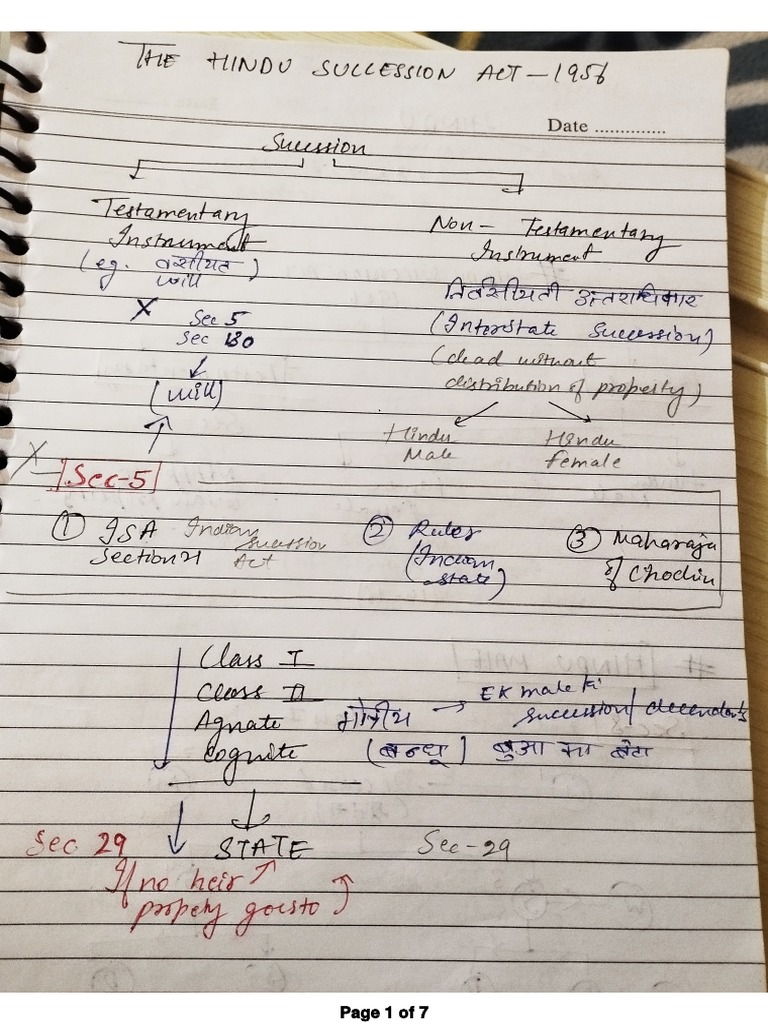 THE HINDU SUCCESSION ACT - 1956
Date ..............
Sucession
Testamentary
Instrument
(eg. वसीयत)
will
X Sec 5
Sec 30
(will)
Non - Testamentary
Instrument
निर्वसीयती उत्तराधिकार
(Interstate Sucession)
(dead without
distribution of property)
Hindu
Male
Hindu
female
X Sec-5
① ISA Indian
Section 21 sucession
Act
② Rules
(Indian
state)
③ Maharaja
of Chochin
Class I
Class II
Agnate गोत्रीय → EK male ki
succession/decendants
Cognite (बन्धू) बुआ का बेटा
Sec 29 STATE Sec-29
If no heir
propety goes to
Page 1 of 7